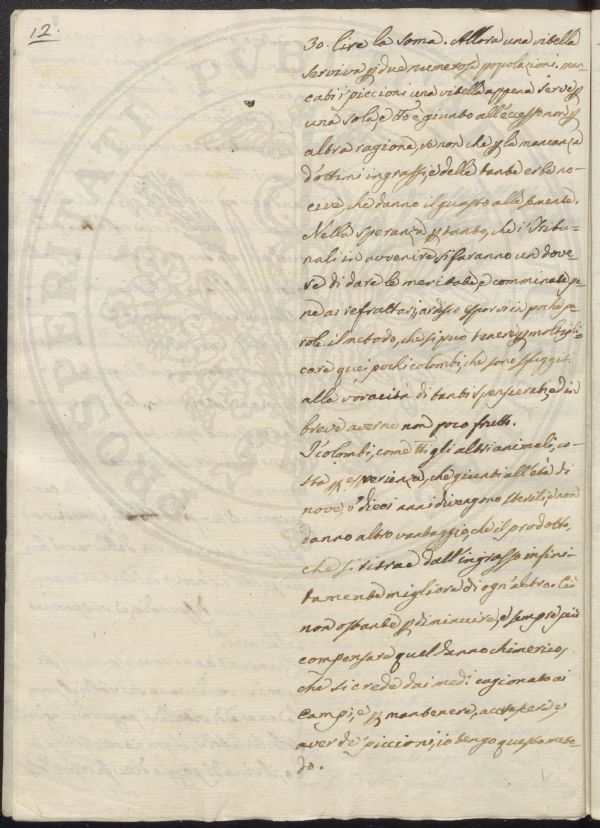 12.
30. lire la soma. Allora una vibella
serviva p due numerose popolazioni. man-
cati i piccioni una vibella appena serve p
una sola, e ciò è giunto all'eccesso non p
altra ragione, se non che p la mancanza
d'ottimi ingrassi, e delle tante erbe no-
cive, che danno il guasto alle semente.
Nella speranza p tanto, che i Tribu-
nali in avvenire si faranno un dove-
re di dare le meritate, e comminate pe-
ne ai refrattarj, ardisco esporvi in poche pa-
role il metodo, che si può tenere p moltipli-
care quei pochi colombi, che sono sfuggiti
alla voracità di tanti spensierati, ed in
breve averne non poco frutto.
I colombi, come tti gli altri animali, co-
sta p esperienza, che giunti all'età di
nove, o dieci anni divengono sterili, e non
danno altro vantaggio, che il prodotto,
che si ritrae dall'ingrasso infini-
tamente migliore di ogn'altro. Ciò
non ostante p diminuire, e sempre più
compensare quel danno chimerico,
che si crede dai medi cagionato ai
campi, e p mantenere, accrescere, e
aver de' piccioni, io tengo questo meto-
do.
PROSPERANTI PVBL